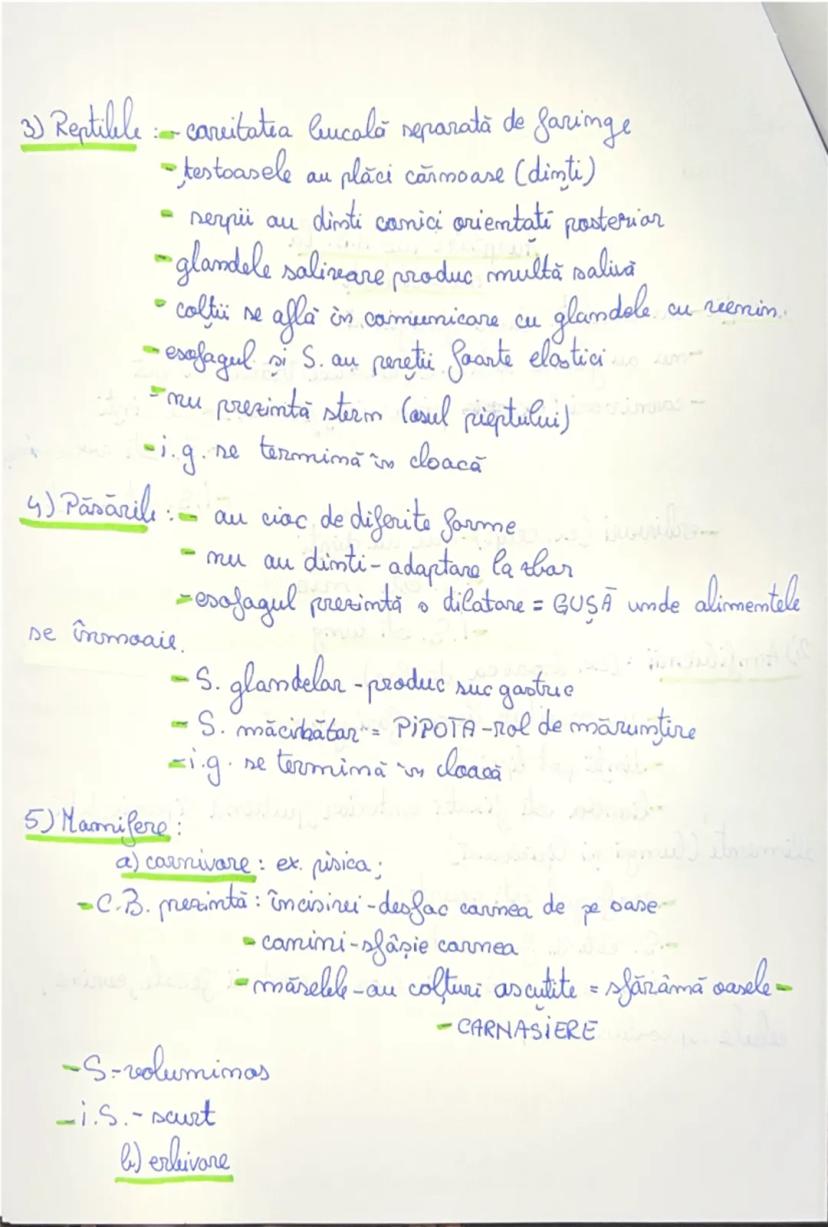 3) Reptilele : - cavitatea bucală separată de faringe
- țestoasele au plăci cărnoase (dinți)
- serpii au dinti conici orientați posterior
- glandele salivare produc multă salivă
- colții se află în comunicare cu glandele cu venin.
- esofagul și S. au pereții foarte elastici
- nu prezintă stern (osul pieptului)
- i.g. se termină în cloacă
4) Păsările : - au cioc de diferite forme
- nu au dinti - adaptare la zbor
- esofagul prezintă o dilatare = GUȘĂ unde alimentele
se înmoaie.
- S. glandelar - produc suc gastric
- S. măcinător = PIPOTA - rol de mărunțire
- i.g. se termină în cloacă
5) Mamifere :
a) carnivore : ex. pisica ;
- C.B. prezintă : incisivi - desfac carnea de pe oase
- canini - sfâșie carnea
- măselele - au colțuri ascuțite = sfărâmă oasele -
- CARNASIERE
- S - voluminos
- i.S. - scurt
b) erbivore